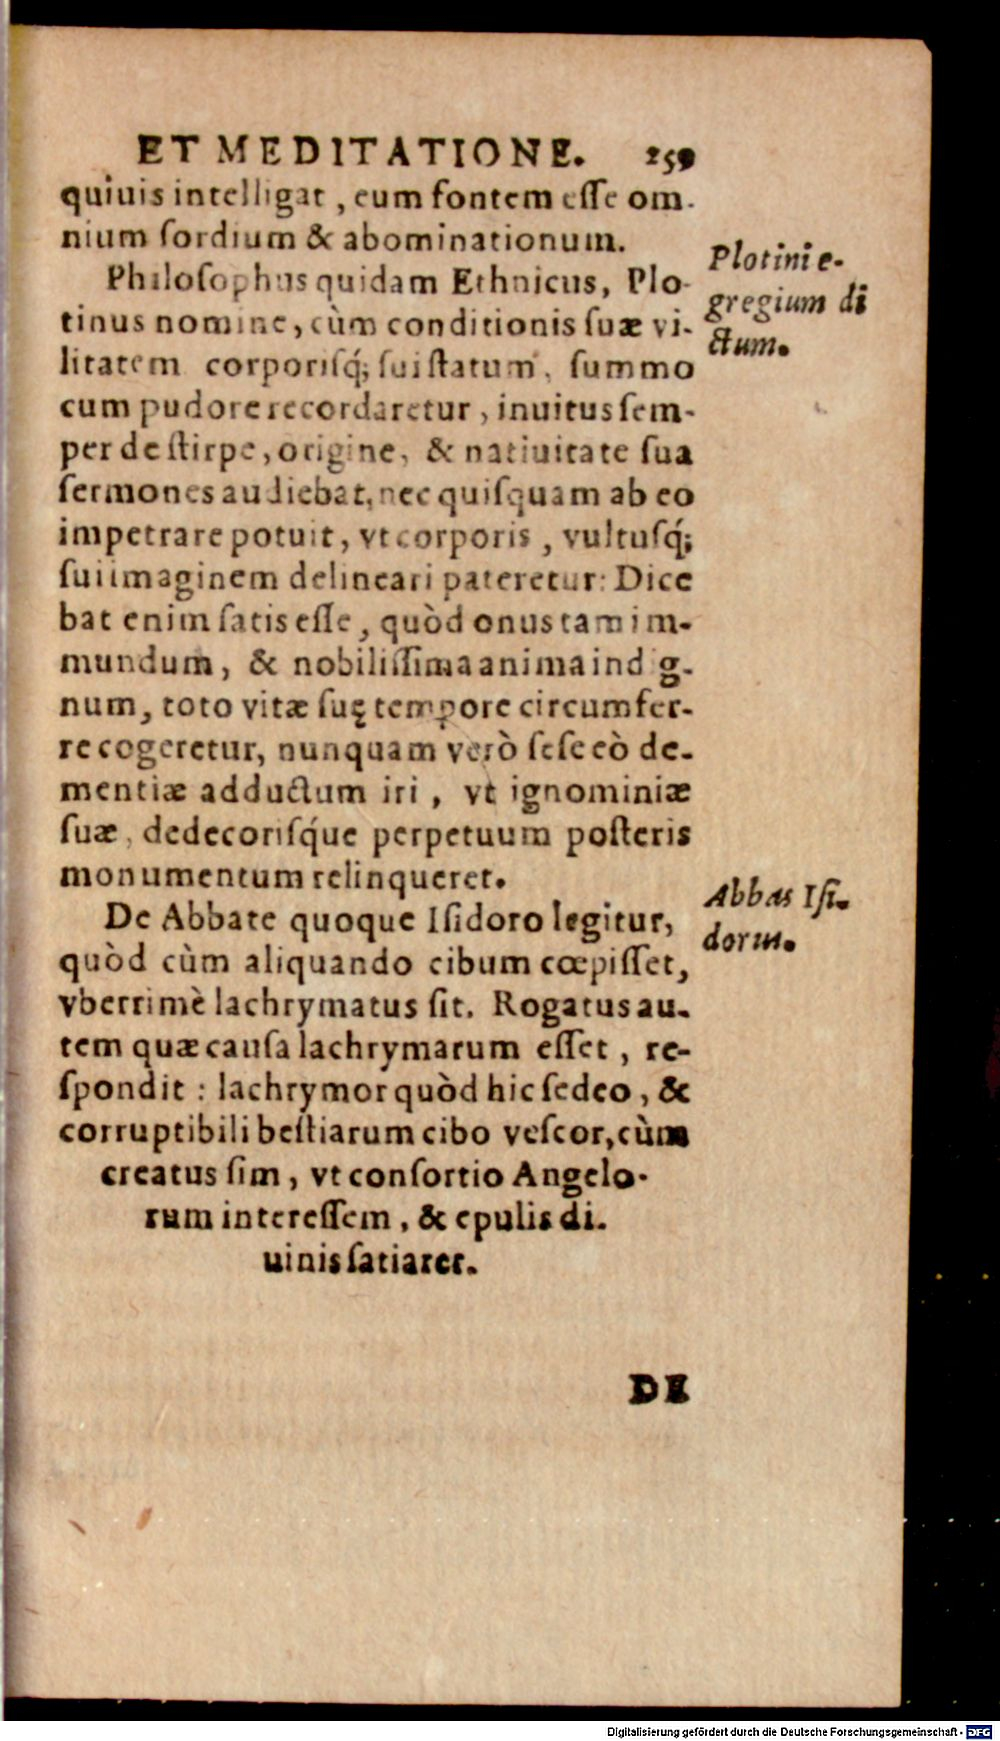 ET MEDITATIONE. 259
quiuis intelligat, eum fontem eſſe om-
nium ſordium & abominationum.
Plotini e-
gregium di
ctum.
Philoſophus quidam Ethnicus, Plo-
tinus nomine, cùm conditionis ſuæ vi-
litatem corporiſq́; ſui ſtatum, ſummo
cum pudore recordaretur, inuitus ſem-
per de ſtirpe, origine, & natiuitate ſua
ſermones audiebat, nec quiſquam ab eo
impetrare potuit, vt corporis, vultuſq́;
ſui imaginem delineari pateretur: Dice
bat enim ſatis eſſe, quòd onus tam im-
mundum, & nobiliſſima anima indig-
num, toto vitæ ſuę tempore circumfer-
re cogeretur, nunquam verò ſeſe eò de-
mentiæ adductum iri, vt ignominiæ
ſuæ, dedecoriſq́ue perpetuum poſteris
monumentum relinqueret.
Abbas Iſi-
dorus.
De Abbate quoque Iſidoro legitur,
quòd cùm aliquando cibum cœpiſſet,
vberrimè lachrymatus ſit. Rogatus au-
tem quæ cauſa lachrymarum eſſet, re-
ſpondit: lachrymor quòd hic ſedeo, &
corruptibili beſtiarum cibo veſcor, cùm
creatus ſim, vt conſortio Angelo-
rum intereſſem, & epulis di-
uinis ſatiarer.
DE
Digitalisierung gefördert durch die Deutsche Forschungsgemeinschaft - DFG